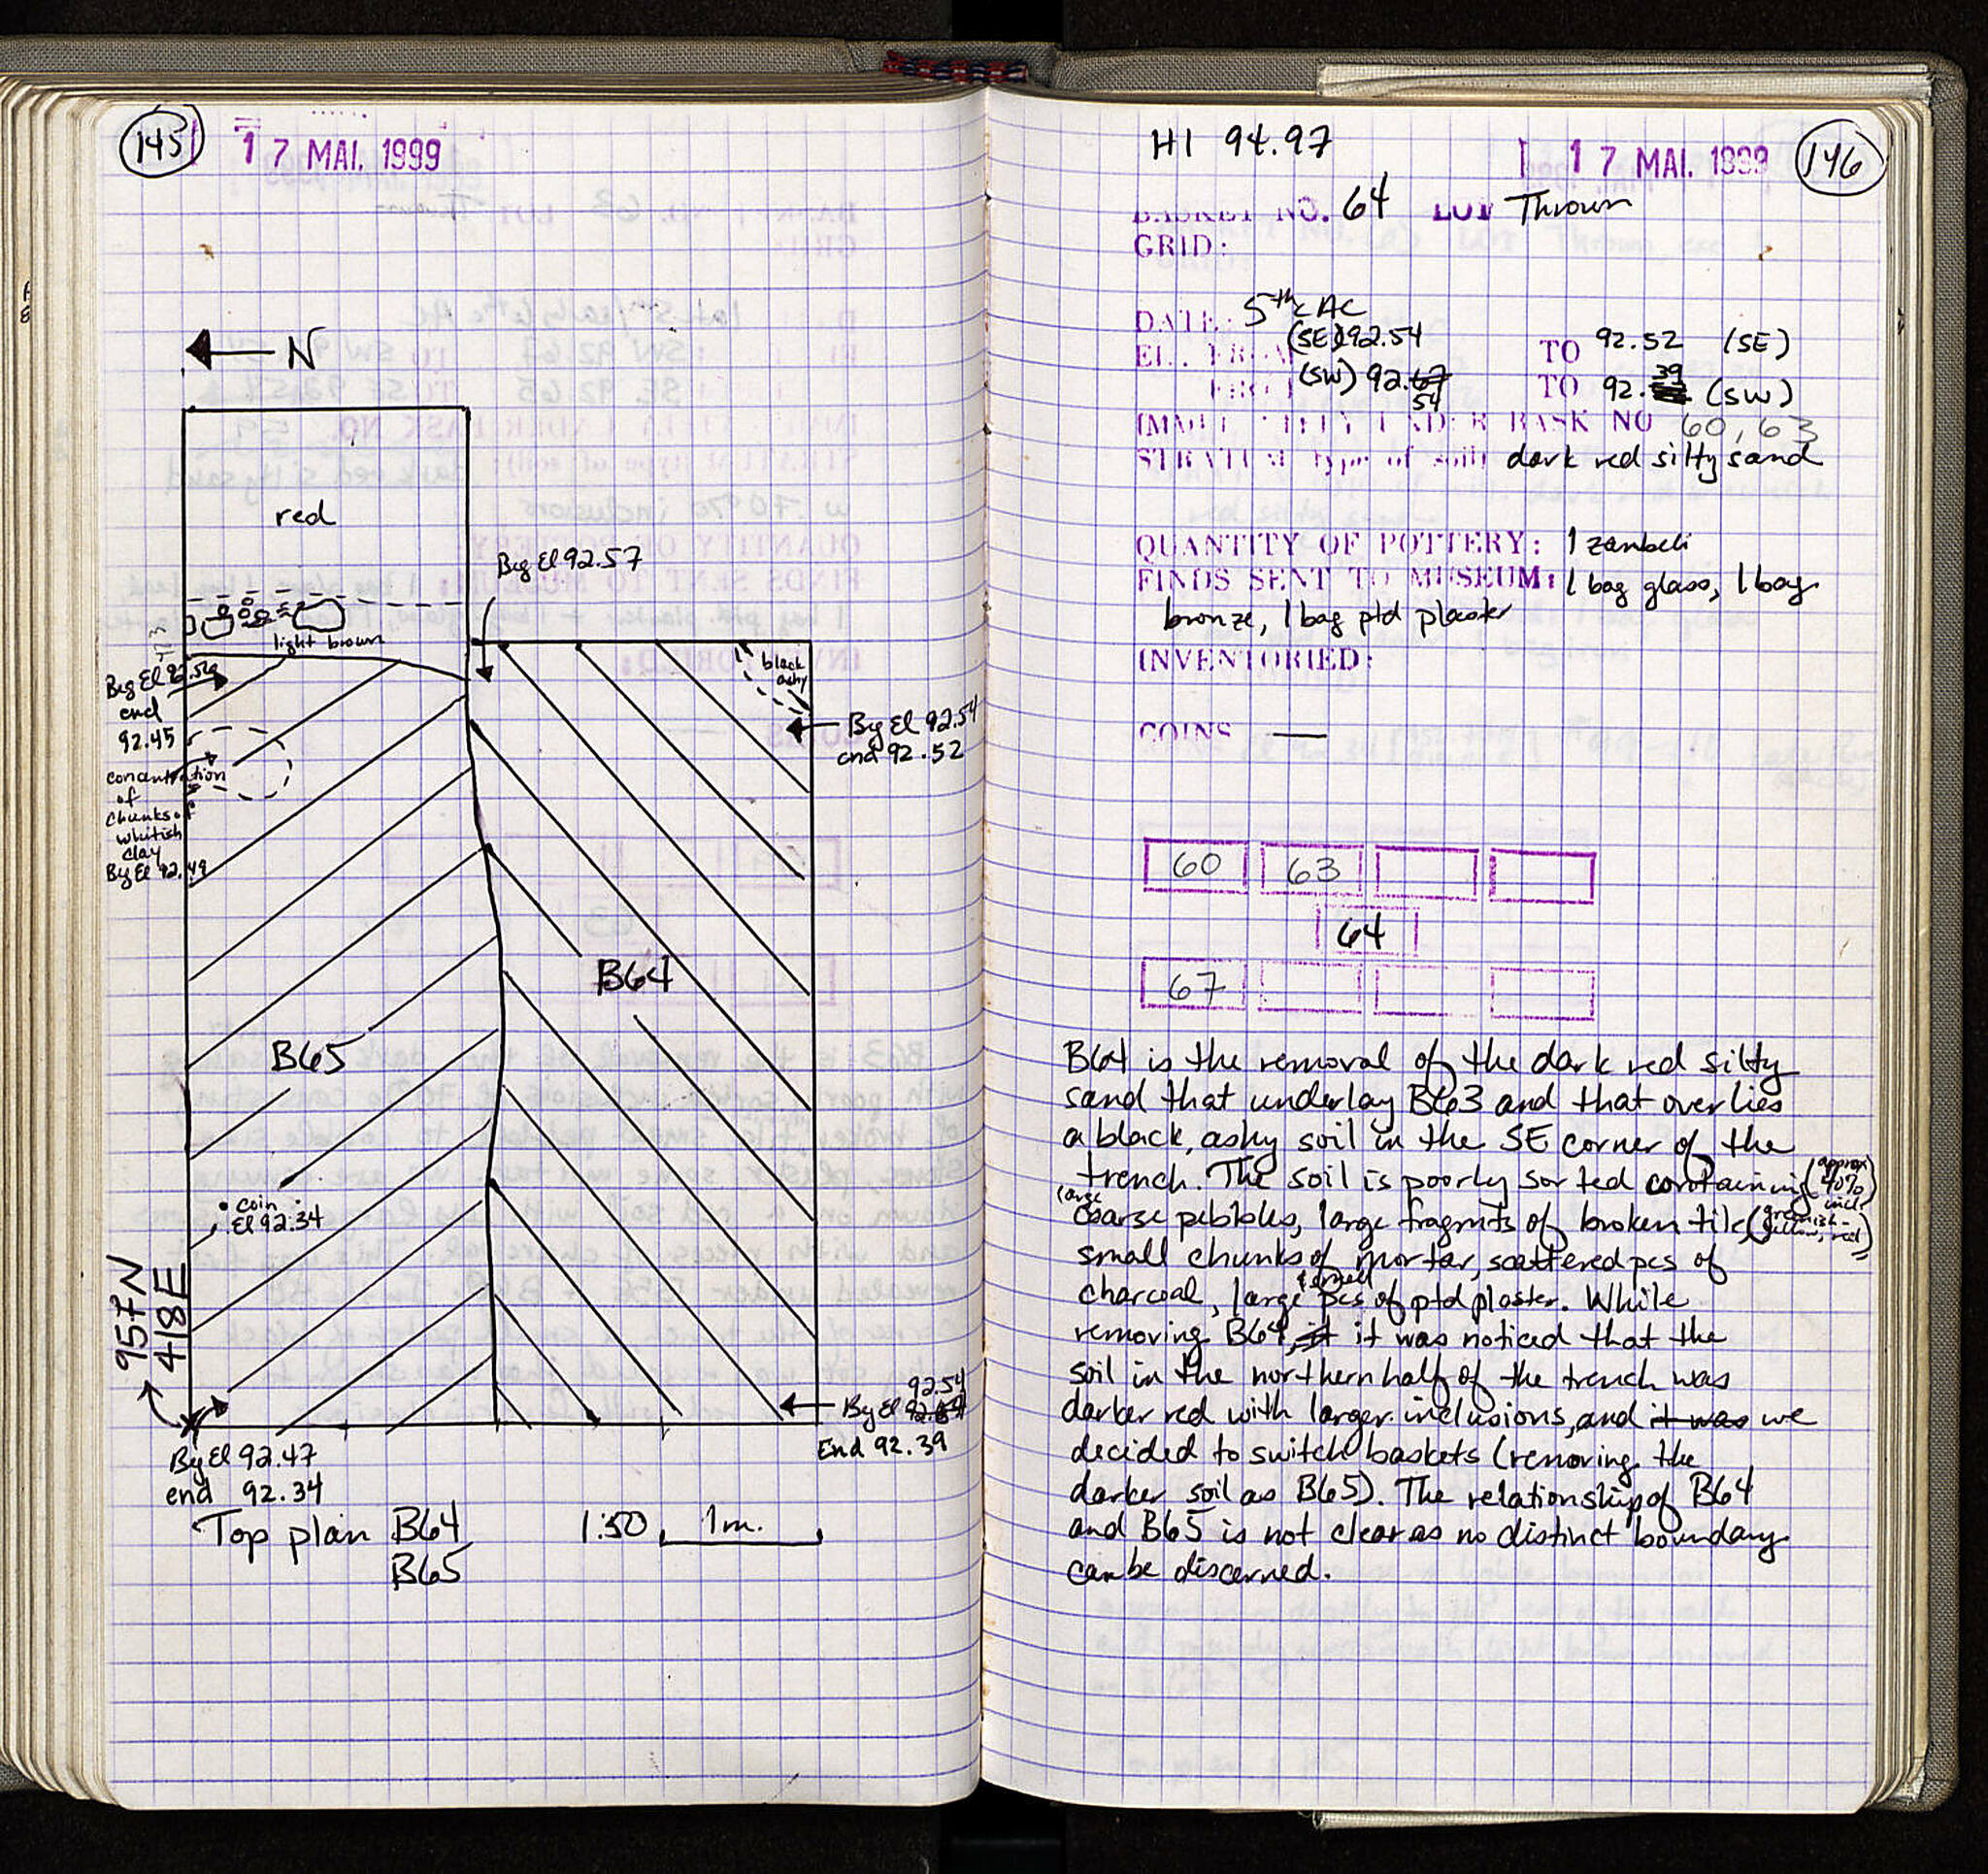 145
17 MAI. 1999
N
red
Beg El 92.57
light brown
black
ashy
Beg El
end
92.45
Beg El 92.54
end 92.52
concentration
of
chunks of
whitish
clay
Beg El 92.49
B64
B65
coin
El 92.34
957N
418E
92.54
Beg El
End 92.39
Beg El 92.47
end 92.34
Top plan B64
B65
1:50 1m.
HI 94.97
17 MAI. 1999
146
BASKET NO. 64 LOT Thrown
GRID:
DATE: 5th c AC
EL. FROM (SE) 92.54 TO 92.52 (SE)
FROM (SW) 92.67 54 TO 92.39 (SW)
IMMEDIATELY UNDER BASK NO 60, 63
STRATUM (type of soil) dark red silty sand
QUANTITY OF POTTERY: 1 zembeli
FINDS SENT TO MUSEUM: 1 bag glass, 1 bag
bronze, 1 bag ptd plaster
INVENTORIED:
COINS —
60 63
64
67
B64 is the removal of the dark red silty
sand that underlay B63 and that overlies
a black, ashy soil in the SE corner of the
trench. The soil is poorly sorted containing (approx 40% incl.)
large coarse pebbles, large fragmts of broken tile (greenish-yellow, red)
small chunks of mortar, scattered pcs of
charcoal, large & small pcs of ptd plaster. While
removing B64, it it was noticed that the
soil in the northern half of the trench was
darker red with larger inclusions, and it was we
decided to switch baskets (removing the
darker soil as B65). The relationship of B64
and B65 is not clear as no distinct boundary
can be discerned.